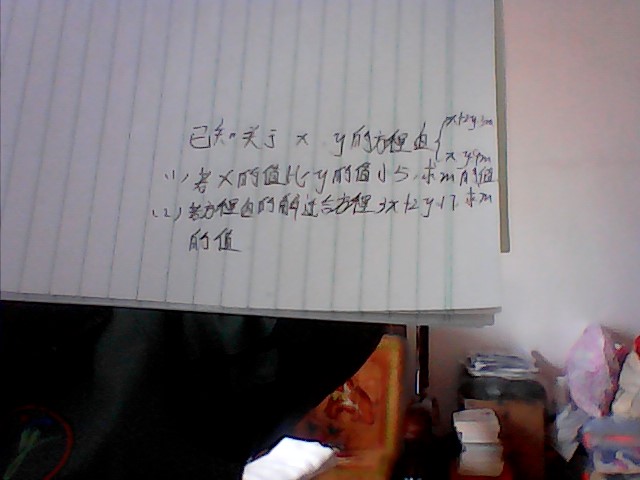 已知关于 x、y的方程组{x+2y=3m
x-y=9m
(1)若x的值比y的值小5,求m的值
(2)若方程组的解适合方程3x+2y=17,求m
的值